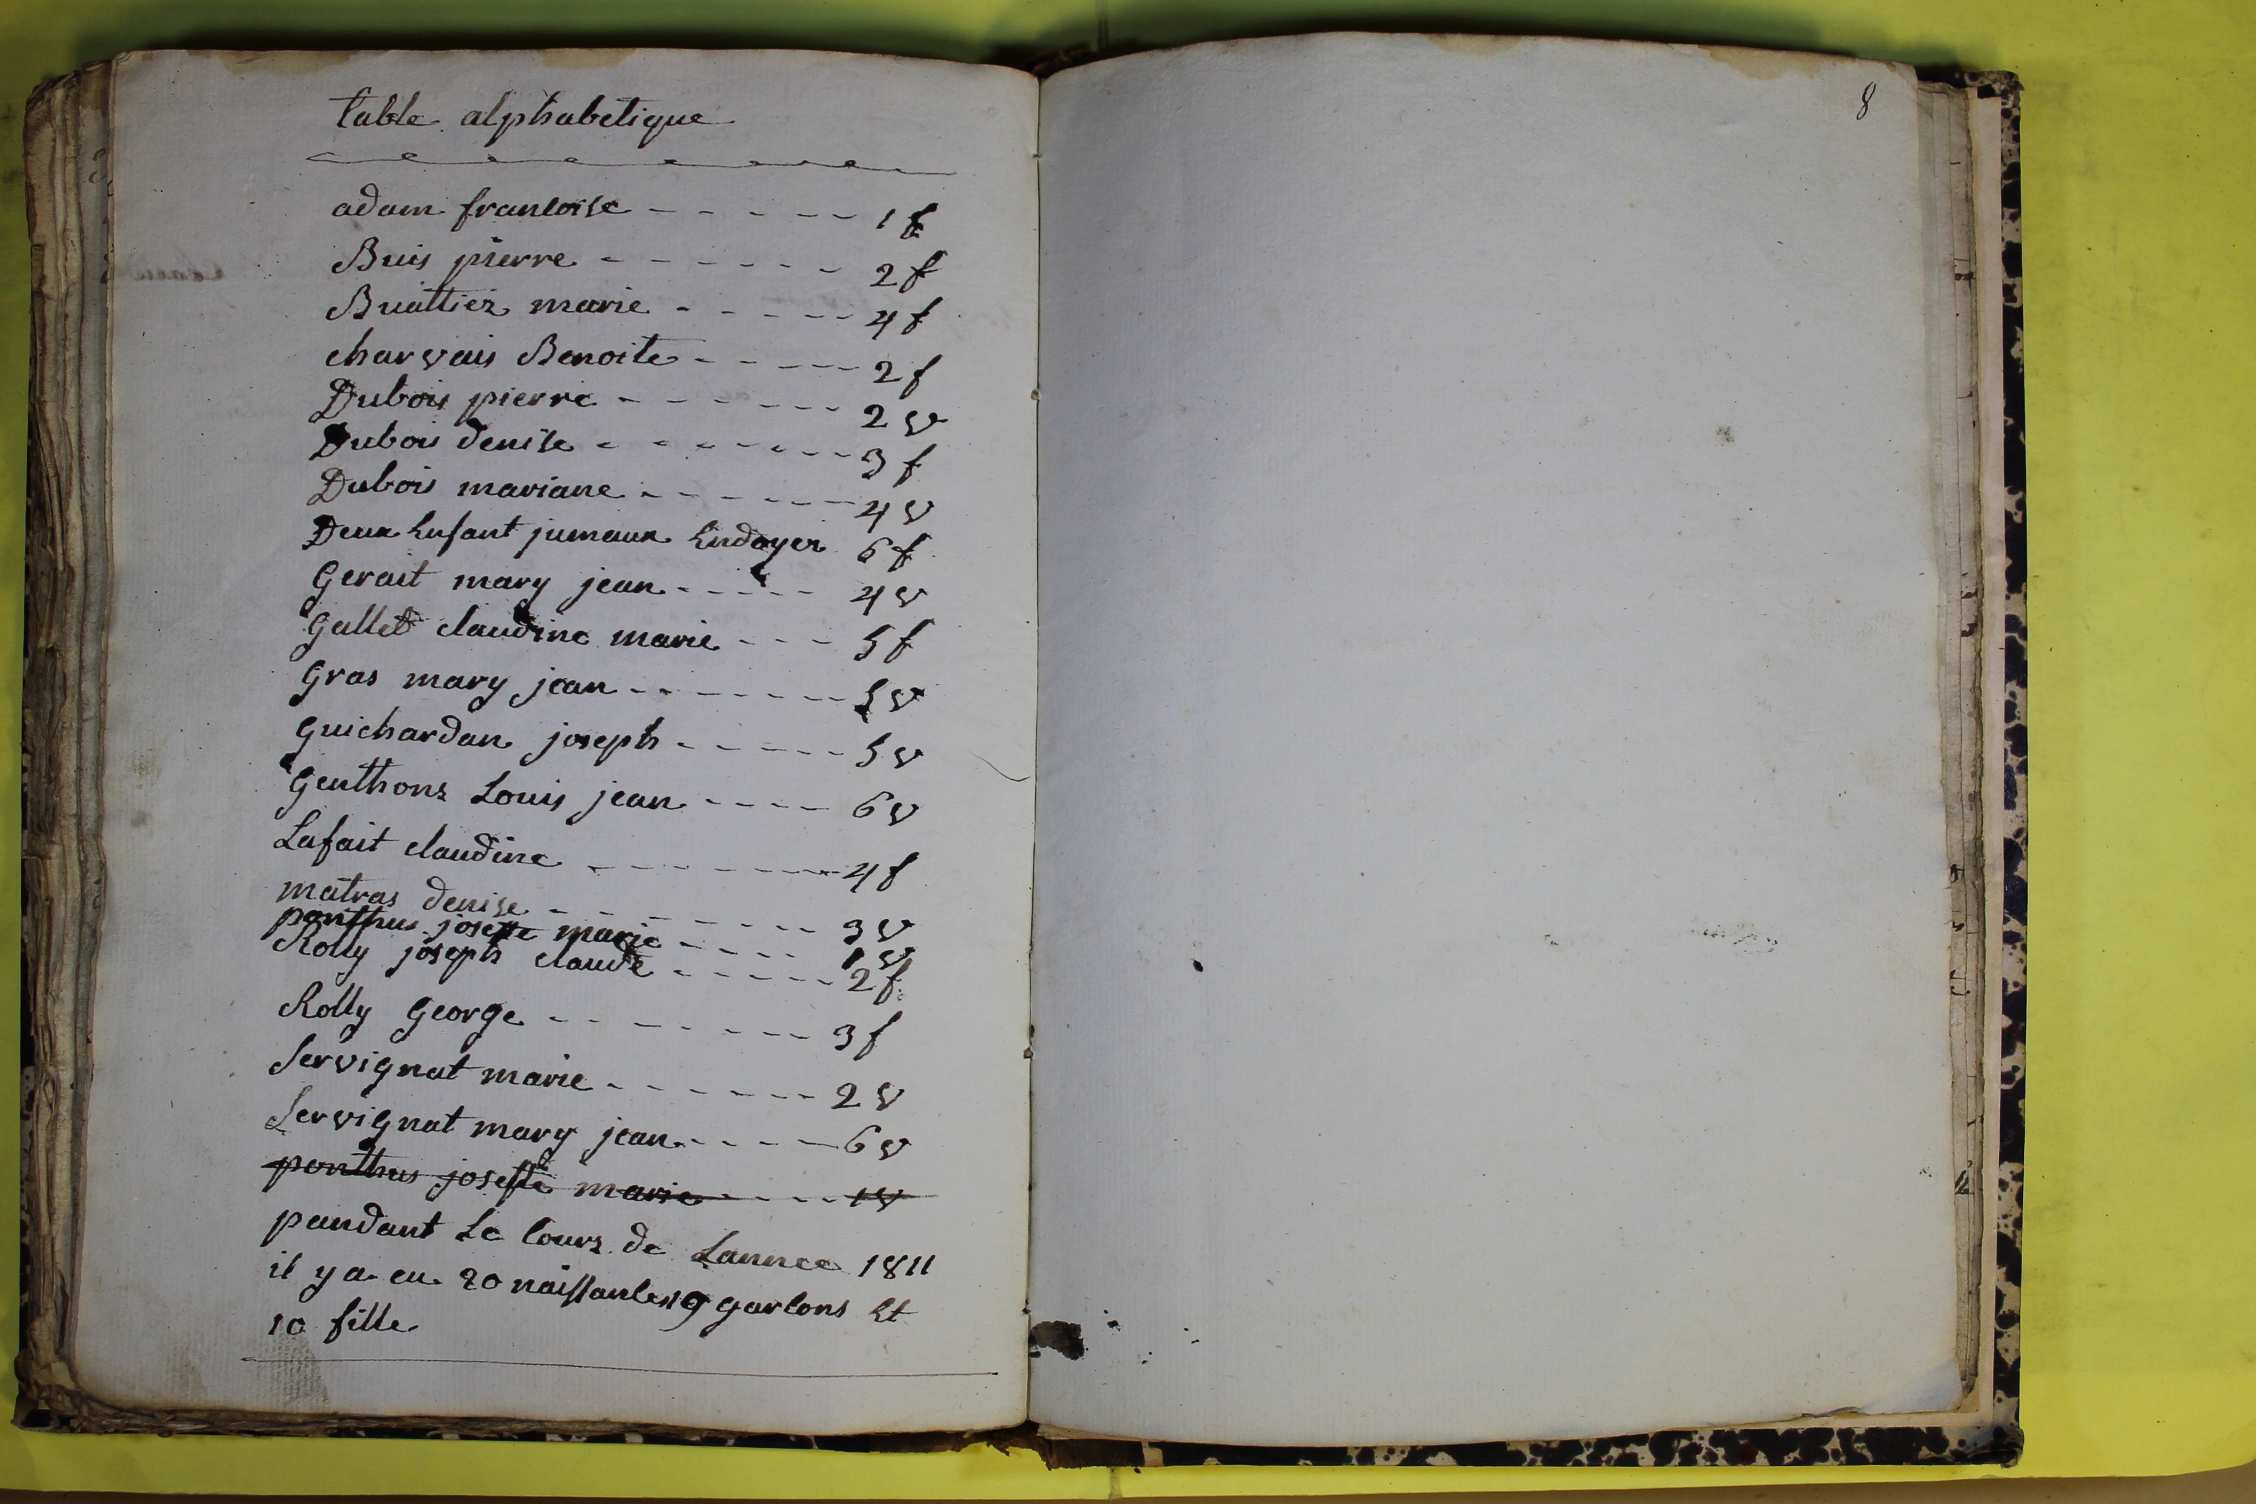 table alphabetique
adam francoise - - - - - - 1 f
Buis pierre - - - - - - 2 f
Buattiez marie - - - - - 4 f
charvais Benoite - - - - - 2 f
Dubois pierre - - - - - - 2 v
Dubois denise - - - - - - 3 f
Dubois mariane - - - - - - 4 v
Deux Enfant jumaux Endoyer 6 f
Gerait mary jean - - - - - 4 v
Gallet claudine marie - - - 5 f
Gras mary jean - - - - - - 5 v
Guichardan joseph - - - - - 5 v
Genthons Louis jean - - - - 6 v
Lafait claudine - - - - - - 4 f
matras denise - - - - - - 3 v
ponthus josette marie - - - - 1 v
Rolly joseph claude - - - - - 2 f
Rolly George - - - - - - 3 f
Servignat marie - - - - - - 2 v
Servignat mary jean - - - - 6 v
ponthus josefte marie - - - 1 v
pandant Le Cours de Lannee 1811
il y a eu 20 naissances 19 garcons Et
10 fille
8